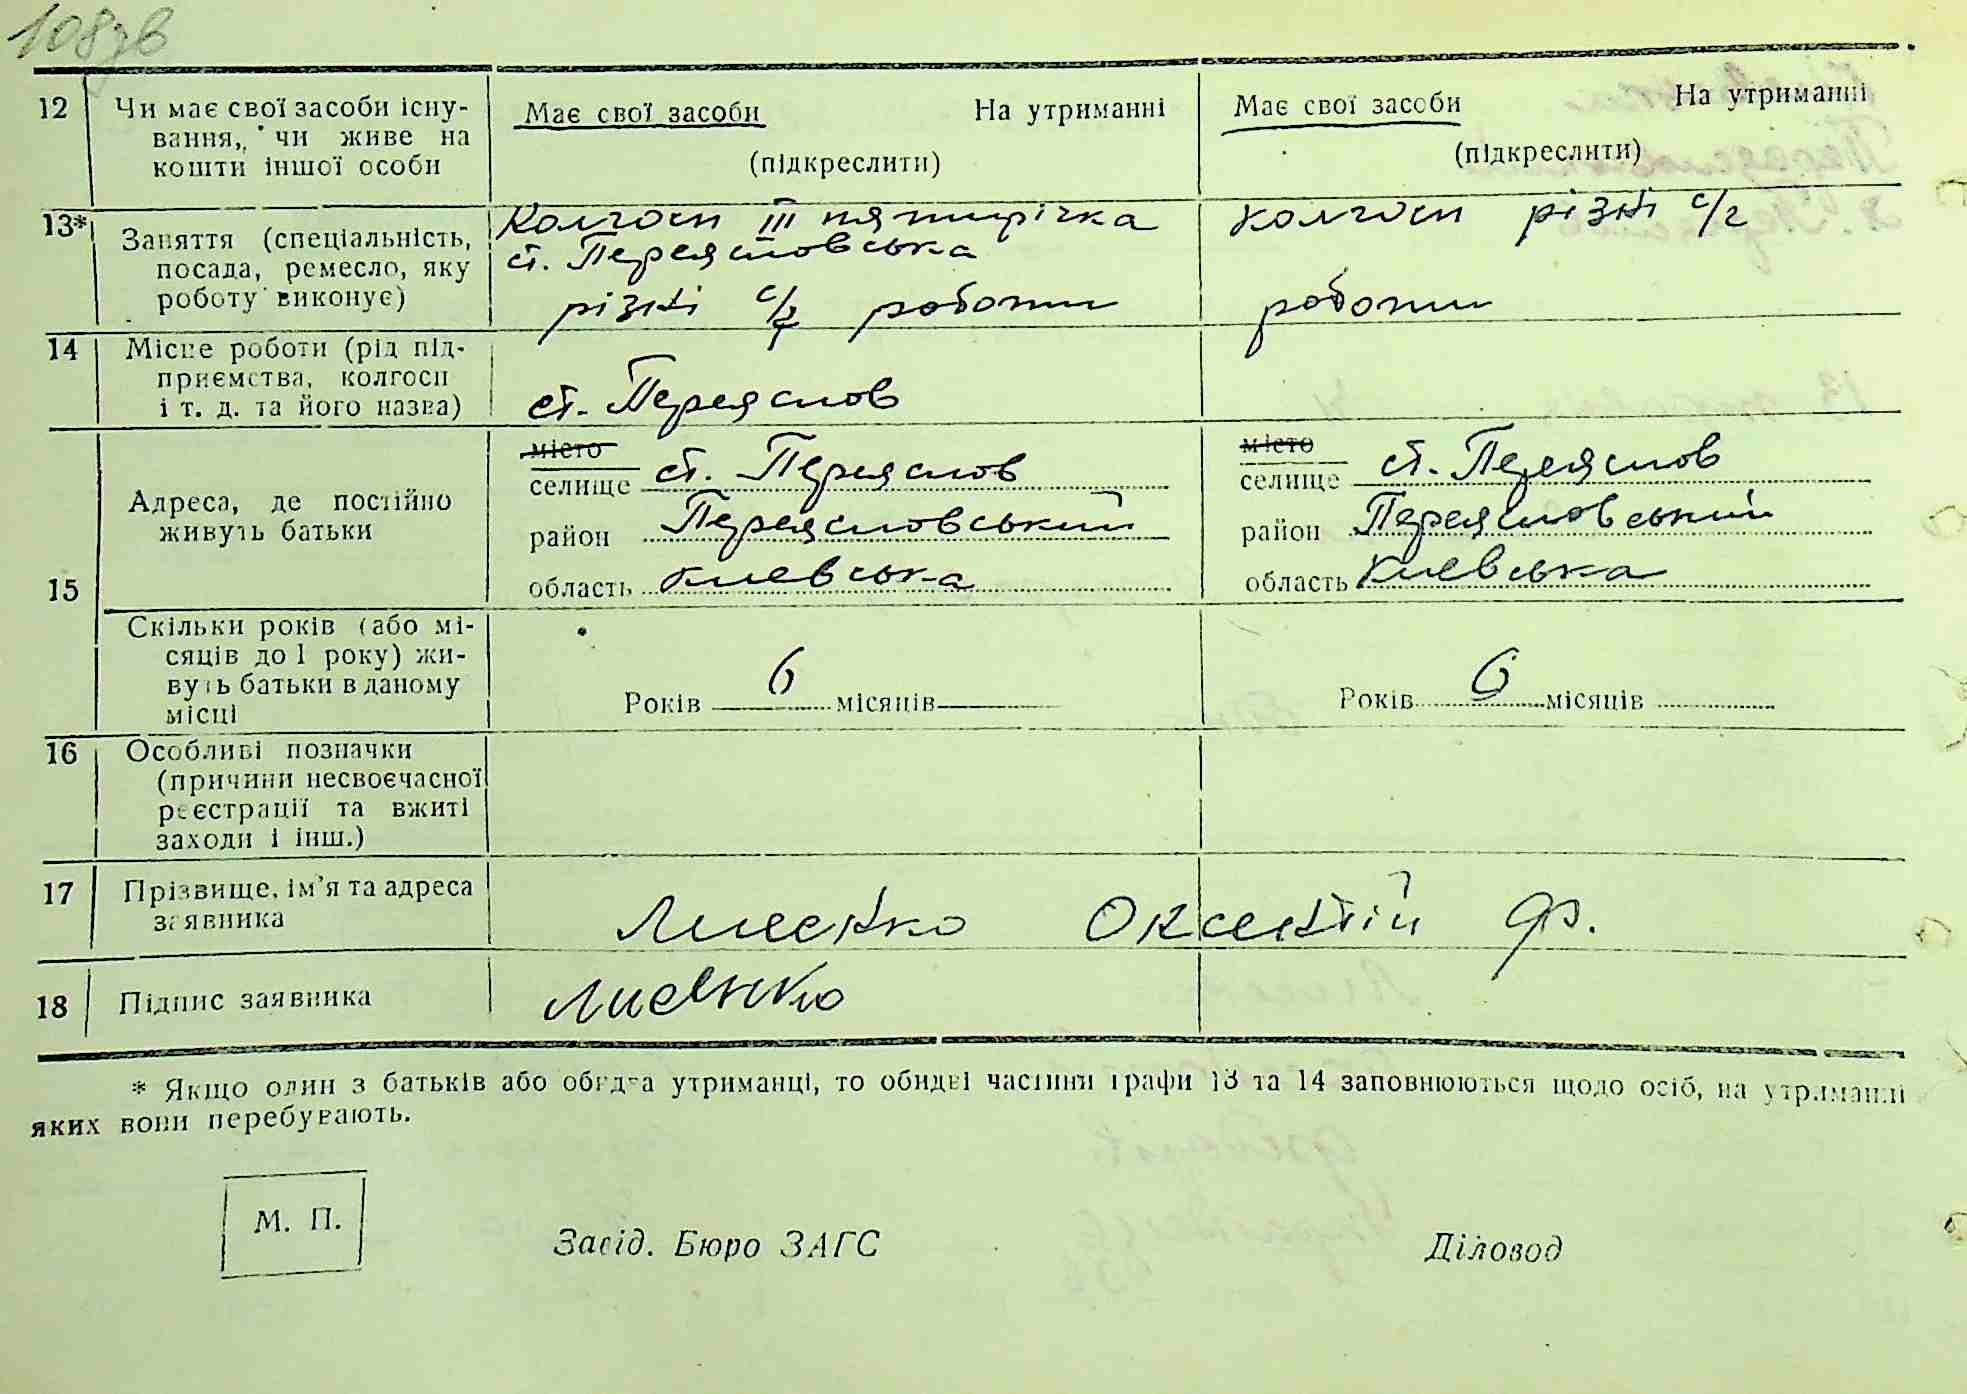 108зв
12 Чи має свої засоби існу-
вання, чи живе на
кошти іншої особи
Має свої засоби На утриманні
(підкреслити)
Має свої засоби На утриманні
(підкреслити)
13* Заняття (спеціальність,
посада, ремесло, яку
роботу виконує)
Колгосп ІІІ пятирічка
ст. Переясловська
різні с/г роботи
колгосп різні с/г
роботи
14 Місце роботи (рід під-
приємства, колгосп
і т. д. та його назва)
ст. Переяслов
15 Адреса, де постійно
живуть батьки
місто
селище ст. Переяслов
район Переясловський
область Киевська
місто
селище ст. Переяслов
район Переясловський
область Киевська
Скільки років (або мі-
сяців до 1 року) жи-
вуть батьки в даному
місці
Років 6 місяців
Років 6 місяців
16 Особливі позначки
(причини несвоєчасної
реєстрації та вжиті
заходи і інш.)
17 Прізвище, ім’я та адреса
заявника
Лисенко Оксентій Ф.
18 Підпис заявника
Лисенко
* Якщо один з батьків або обидва утриманці, то обидві частини графи 13 та 14 заповнюються щодо осіб, на утриманні
яких вони перебувають.
М. П.
Завід. Бюро ЗАГС
Діловод